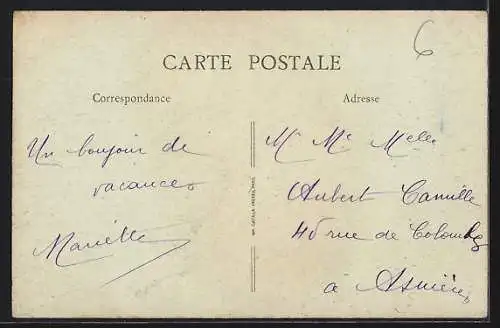 6
CARTE POSTALE
Correspondance
Adresse
Un bonjour de
vacances
Mariette
M. Me Melle
Aubert Camille
45 rue de Colombes
à Asnières